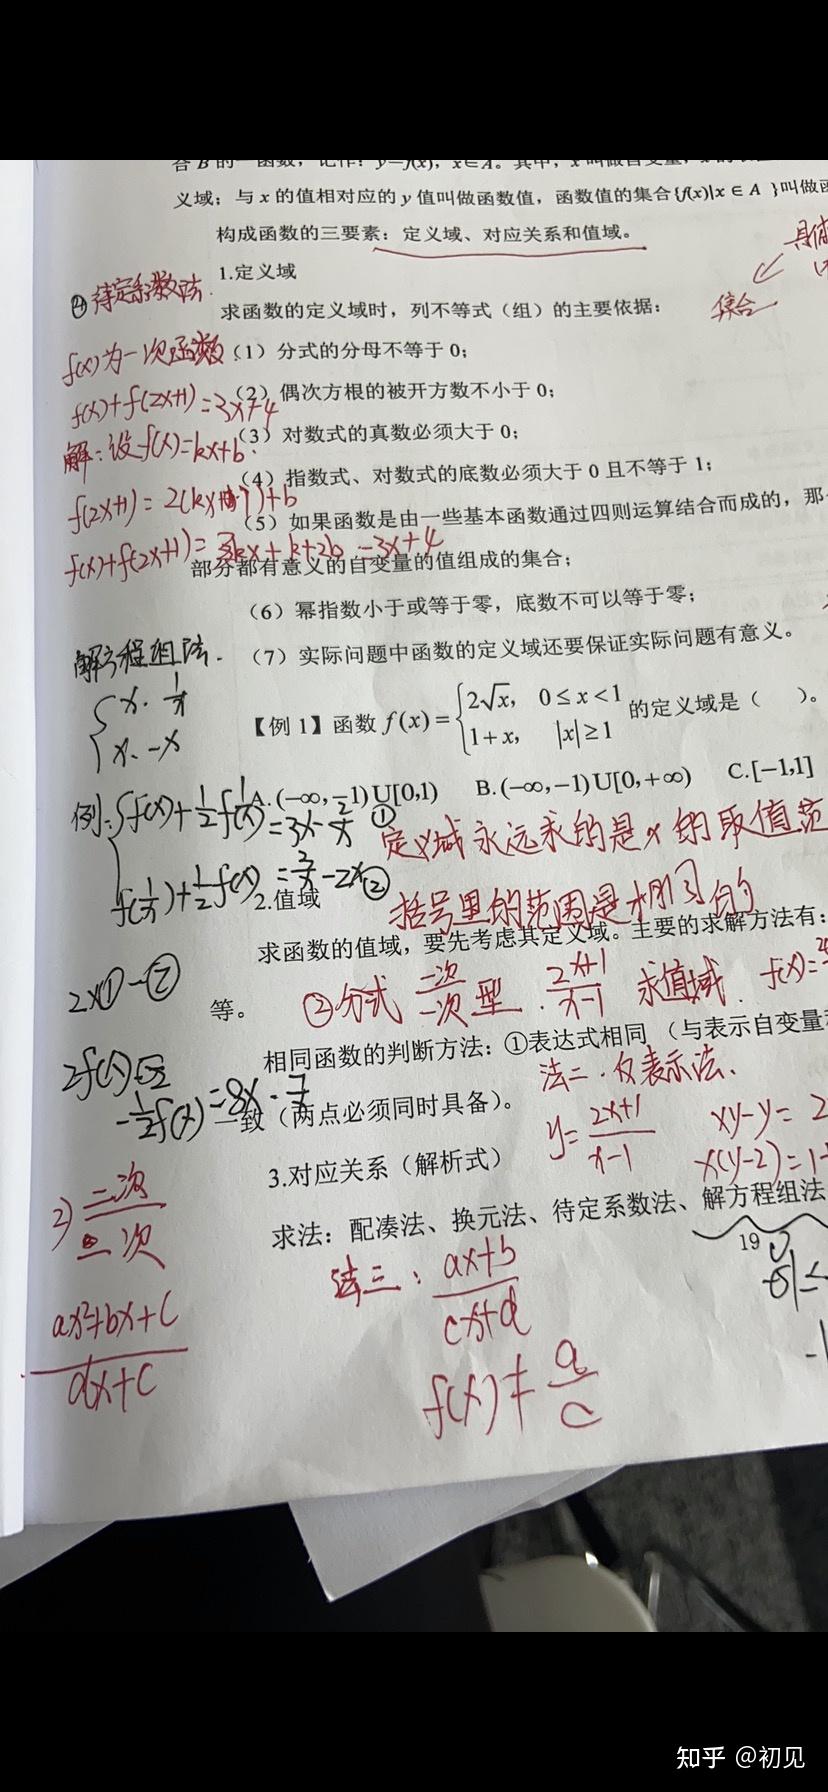 合 B 的一 函数, 记作: y=f(x), x∈A。其中, x 叫做自变量,
义域; 与 x 的值相对应的 y 值叫做函数值, 函数值的集合{f(x)|x∈A }叫做函
构成函数的三要素: 定义域、对应关系和值域。
集合
④待定系数法.
1.定义域
求函数的定义域时, 列不等式 (组) 的主要依据:
f(x)为一次函数
(1) 分式的分母不等于 0;
f(x)+f(2x+1)=3x+4
(2) 偶次方根的被开方数不小于 0;
解:设f(x)=kx+b.
(3) 对数式的真数必须大于 0;
(4) 指数式、对数式的底数必须大于 0 且不等于 1;
f(2x+1)=2(kx )+b
(5) 如果函数是由一些基本函数通过四则运算结合而成的, 那
f(x)+f(2x+1)=3kx+k+2b=3x+4
部分都有意义的自变量的值组成的集合;
(6) 幂指数小于或等于零, 底数不可以等于零;
解方程组法.
(7) 实际问题中函数的定义域还要保证实际问题有意义。
{x. 1/x
x. -x
【例 1】函数 f(x)={2√x, 0≤x<1
1+x, |x|≥1 的定义域是 ( )。
A.(-∞,-1)U[0,1) B.(-∞,-1)U[0,+∞) C.[-1,1]
例:{f(x)+1/2f(1/x)=3x-2/x ①
f(1/x)+1/2f(x)=3/x-2x②
定义域永远求的是x的取值范
括号里的范围是相同的
2.值域
求函数的值域, 要先考虑其定义域。主要的求解方法有:
等。
2x①-②
②分式 一次/一次型. 2x+1/x-1 求值域. f(x)=
相同函数的判断方法: ①表达式相同 (与表示自变量
2f(x)
-1/2f(x)=8x-7/x
法二.反表示法.
一致 (两点必须同时具备)。
y=2x+1/x-1 xy-y=2
x(y-2)=1+
3.对应关系 (解析式)
2) 二次/二次
求法: 配凑法、换元法、待定系数法、解方程组法
19
法三: ax+b/cx+d
ax²+bx+c/dx+c
f(x)≠a/c
知乎 @初见